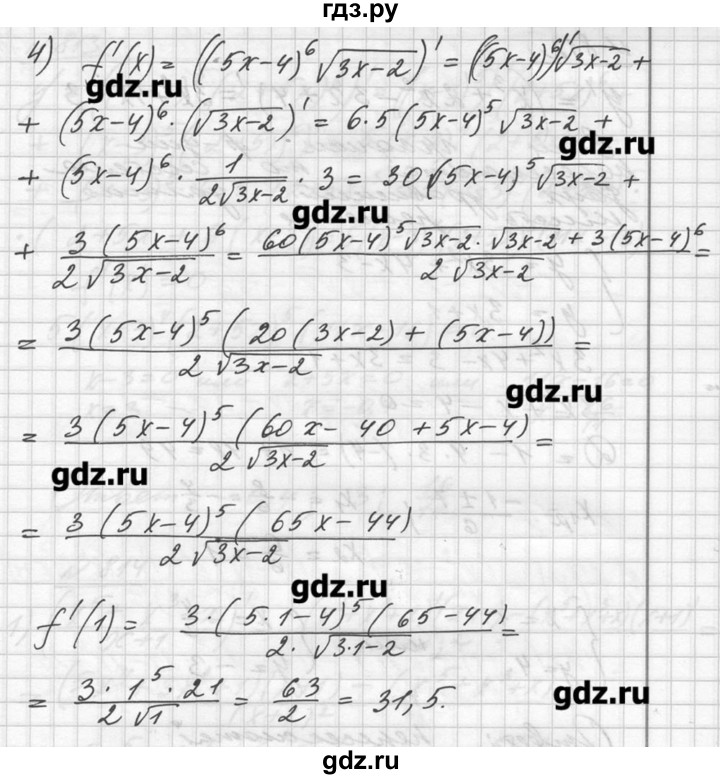 гдз.ру
4) f'(x) = ((5x-4)^6 √(3x-2))' = ((5x-4)^6)' √(3x-2) +
gdz.ru
+ (5x-4)^6 · (√(3x-2))' = 6·5(5x-4)^5 √(3x-2) +
gdz.ru
+ (5x-4)^6 · 1/(2√(3x-2)) · 3 = 30(5x-4)^5 √(3x-2) +
gdz.ru
+ 3(5x-4)^6/(2√(3x-2)) = (60(5x-4)^5 √(3x-2) · √(3x-2) + 3(5x-4)^6)/(2√(3x-2)) =
= 3(5x-4)^5 (20(3x-2) + (5x-4))/(2√(3x-2)) =
gdz.ru
= 3(5x-4)^5 (60x - 40 + 5x-4)/(2√(3x-2)) =
gdz.ru
= 3(5x-4)^5 (65x-44)/(2√(3x-2))
gdz.ru
f'(1) = 3·(5·1-4)^5 (65-44)/(2·√(3·1-2)) =
= 3·1^5·21/(2√1) = 63/2 = 31,5.
gdz.ru
gdz.ru